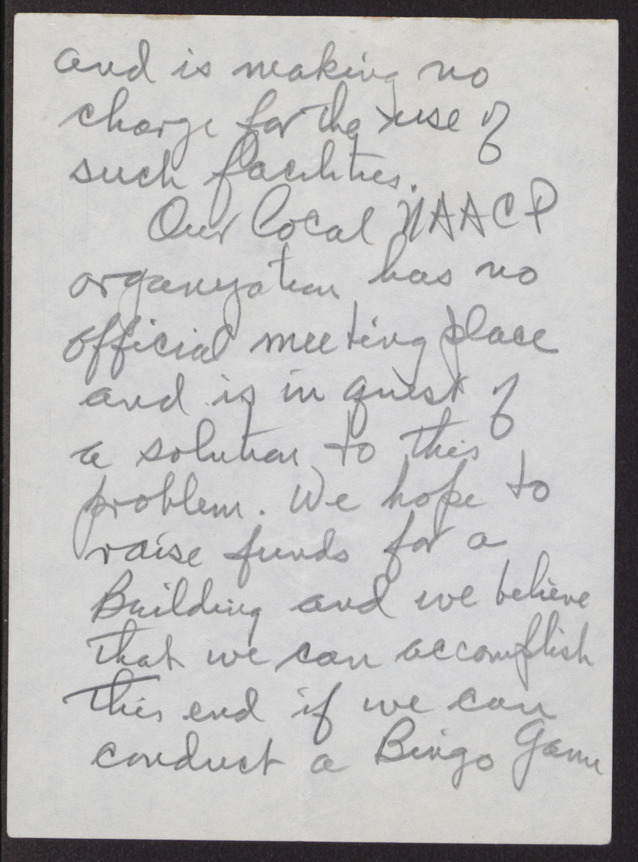 and is making no
charge for the use of
such facilities.
Our local NAACP
organization has no
official meeting place
and is in quest of
a solution to this
problem. We hope to
raise funds for a
Building and we believe
that we can accomplish
this end if we can
conduct a Bingo Game